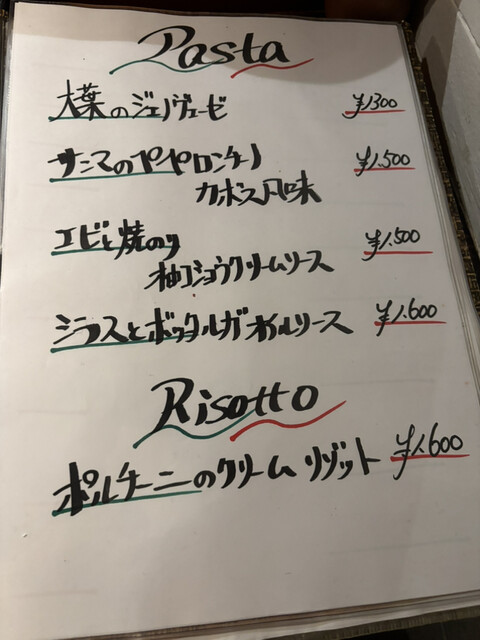 Pasta
大葉のジェノヴェーゼ ¥1300
サンマのペペロンチーノ ¥1.500
カボス風味
エビと焼のり ¥1.500
柚コショウクリームソース
シラスとボッタルガ オイルソース ¥1.600
Risotto
ポルチーニのクリームリゾット ¥1.600